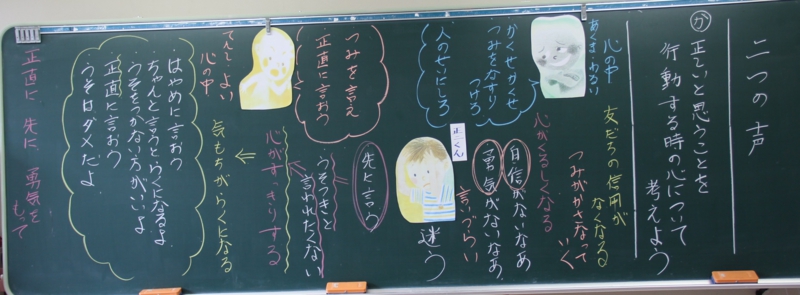 二つの声
か
正しいと思うことを
行動する時の心について
考えよう
友だちの信用が
なくなる
つみがかさなって
いく
心がくるしくなる
自信がないなあ
勇気がないなあ
言いづらい
あくま わるい
心の中
かくせかくせ
つみをなすり
つけろ
人のせいにしろ
正二くん
迷う
つみを言え
正直に言おう
てんし よい
心の中
先に言おう
うそつきと
言われたくない
心がすっきりする
気もちがらくになる
はやめに言おう
ちゃんと言うとらくになるよ
うそをつかない方がいいよ
正直に言おう
うそはダメだよ
正直に 先に 勇気を
もって